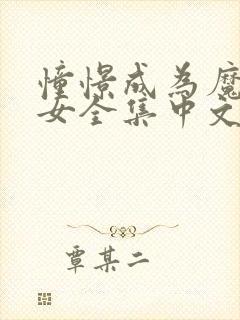 憧憬成為魔
女全集中文
覃某二